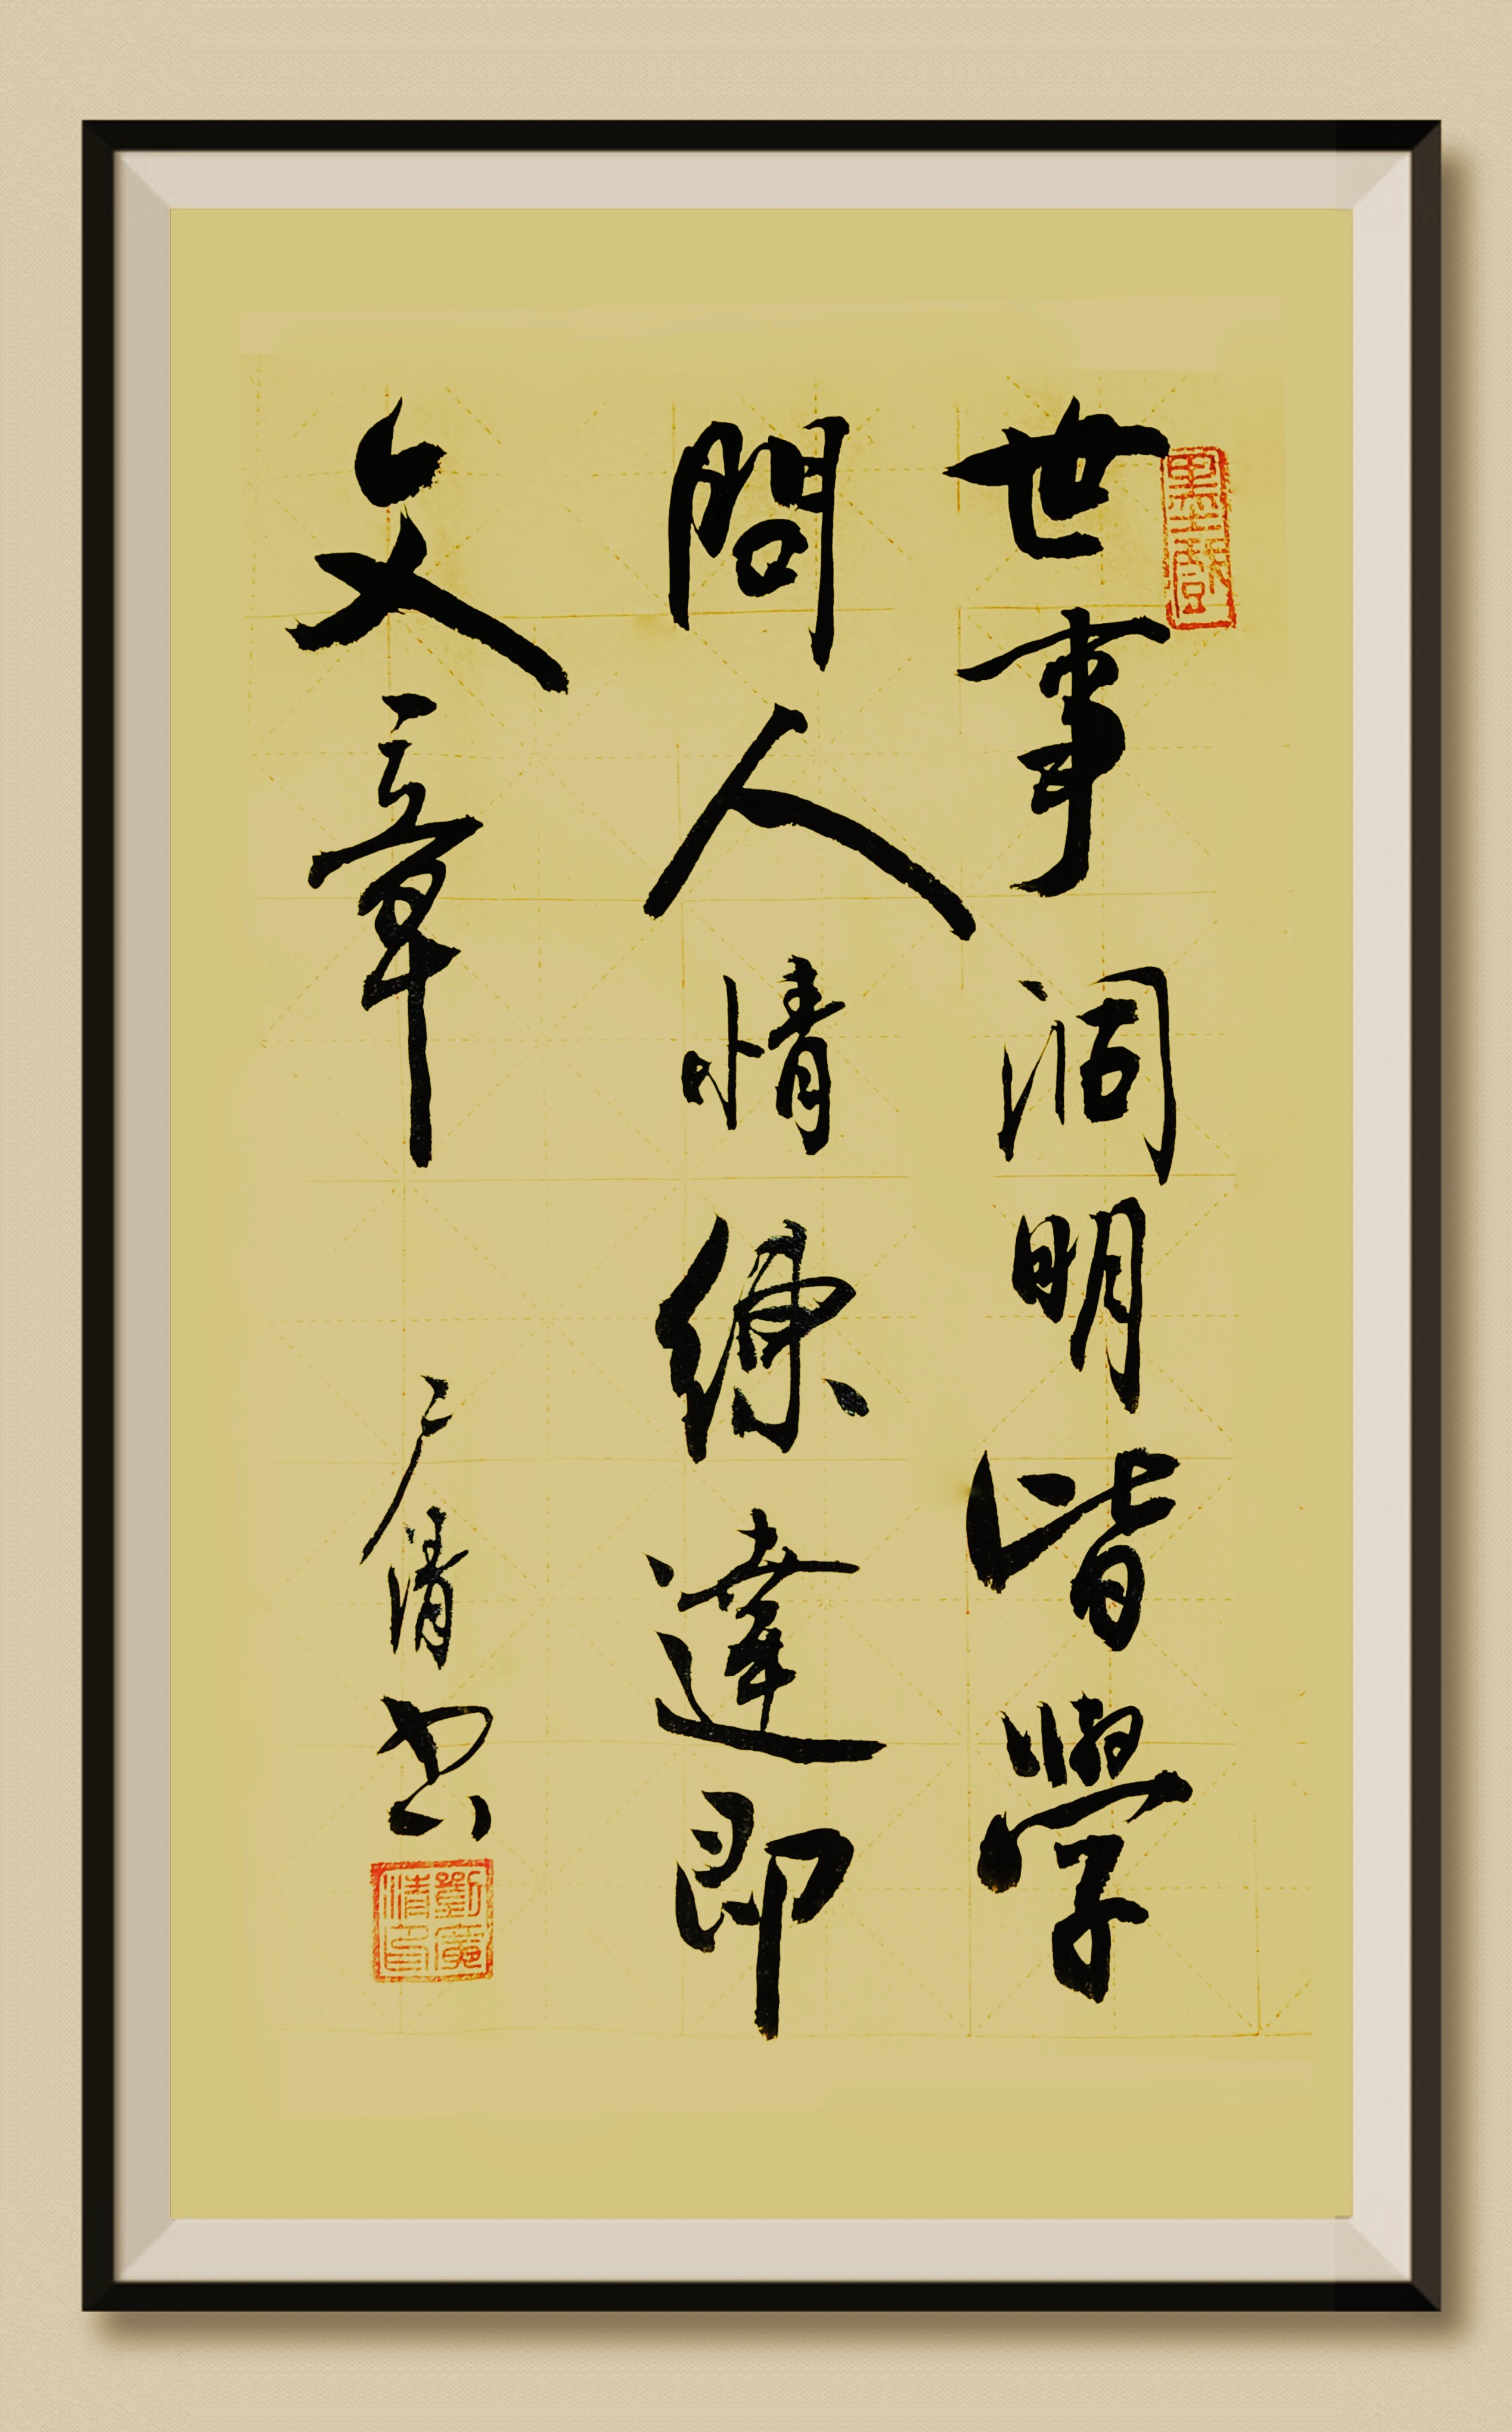 世事洞明皆學
問人情練達即
文章
广清书
劉廣清印